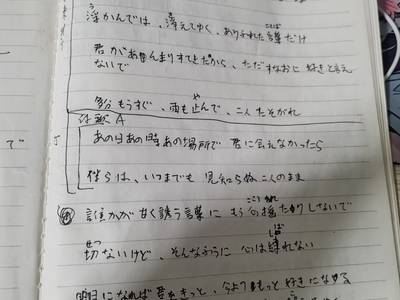 う
浮かんでは、消えてゆく、ありふれた言葉だけ
君があんまりすてきだから、ただすなおに 好きと言え
ないで
多分もうすぐ、雨も止んで、二人 たそがれ
伴奏 A
あの日あの時あの場所で 君に会えなかったら
で
僕らは、いつまでも 見知らぬ二人のまま
誰かが甘く誘う言葉に もう心揺れたりしないで
切ないけど、そんなふうに 心は縛れない
明日になれば君をきっと、今よりもっと 好きになる